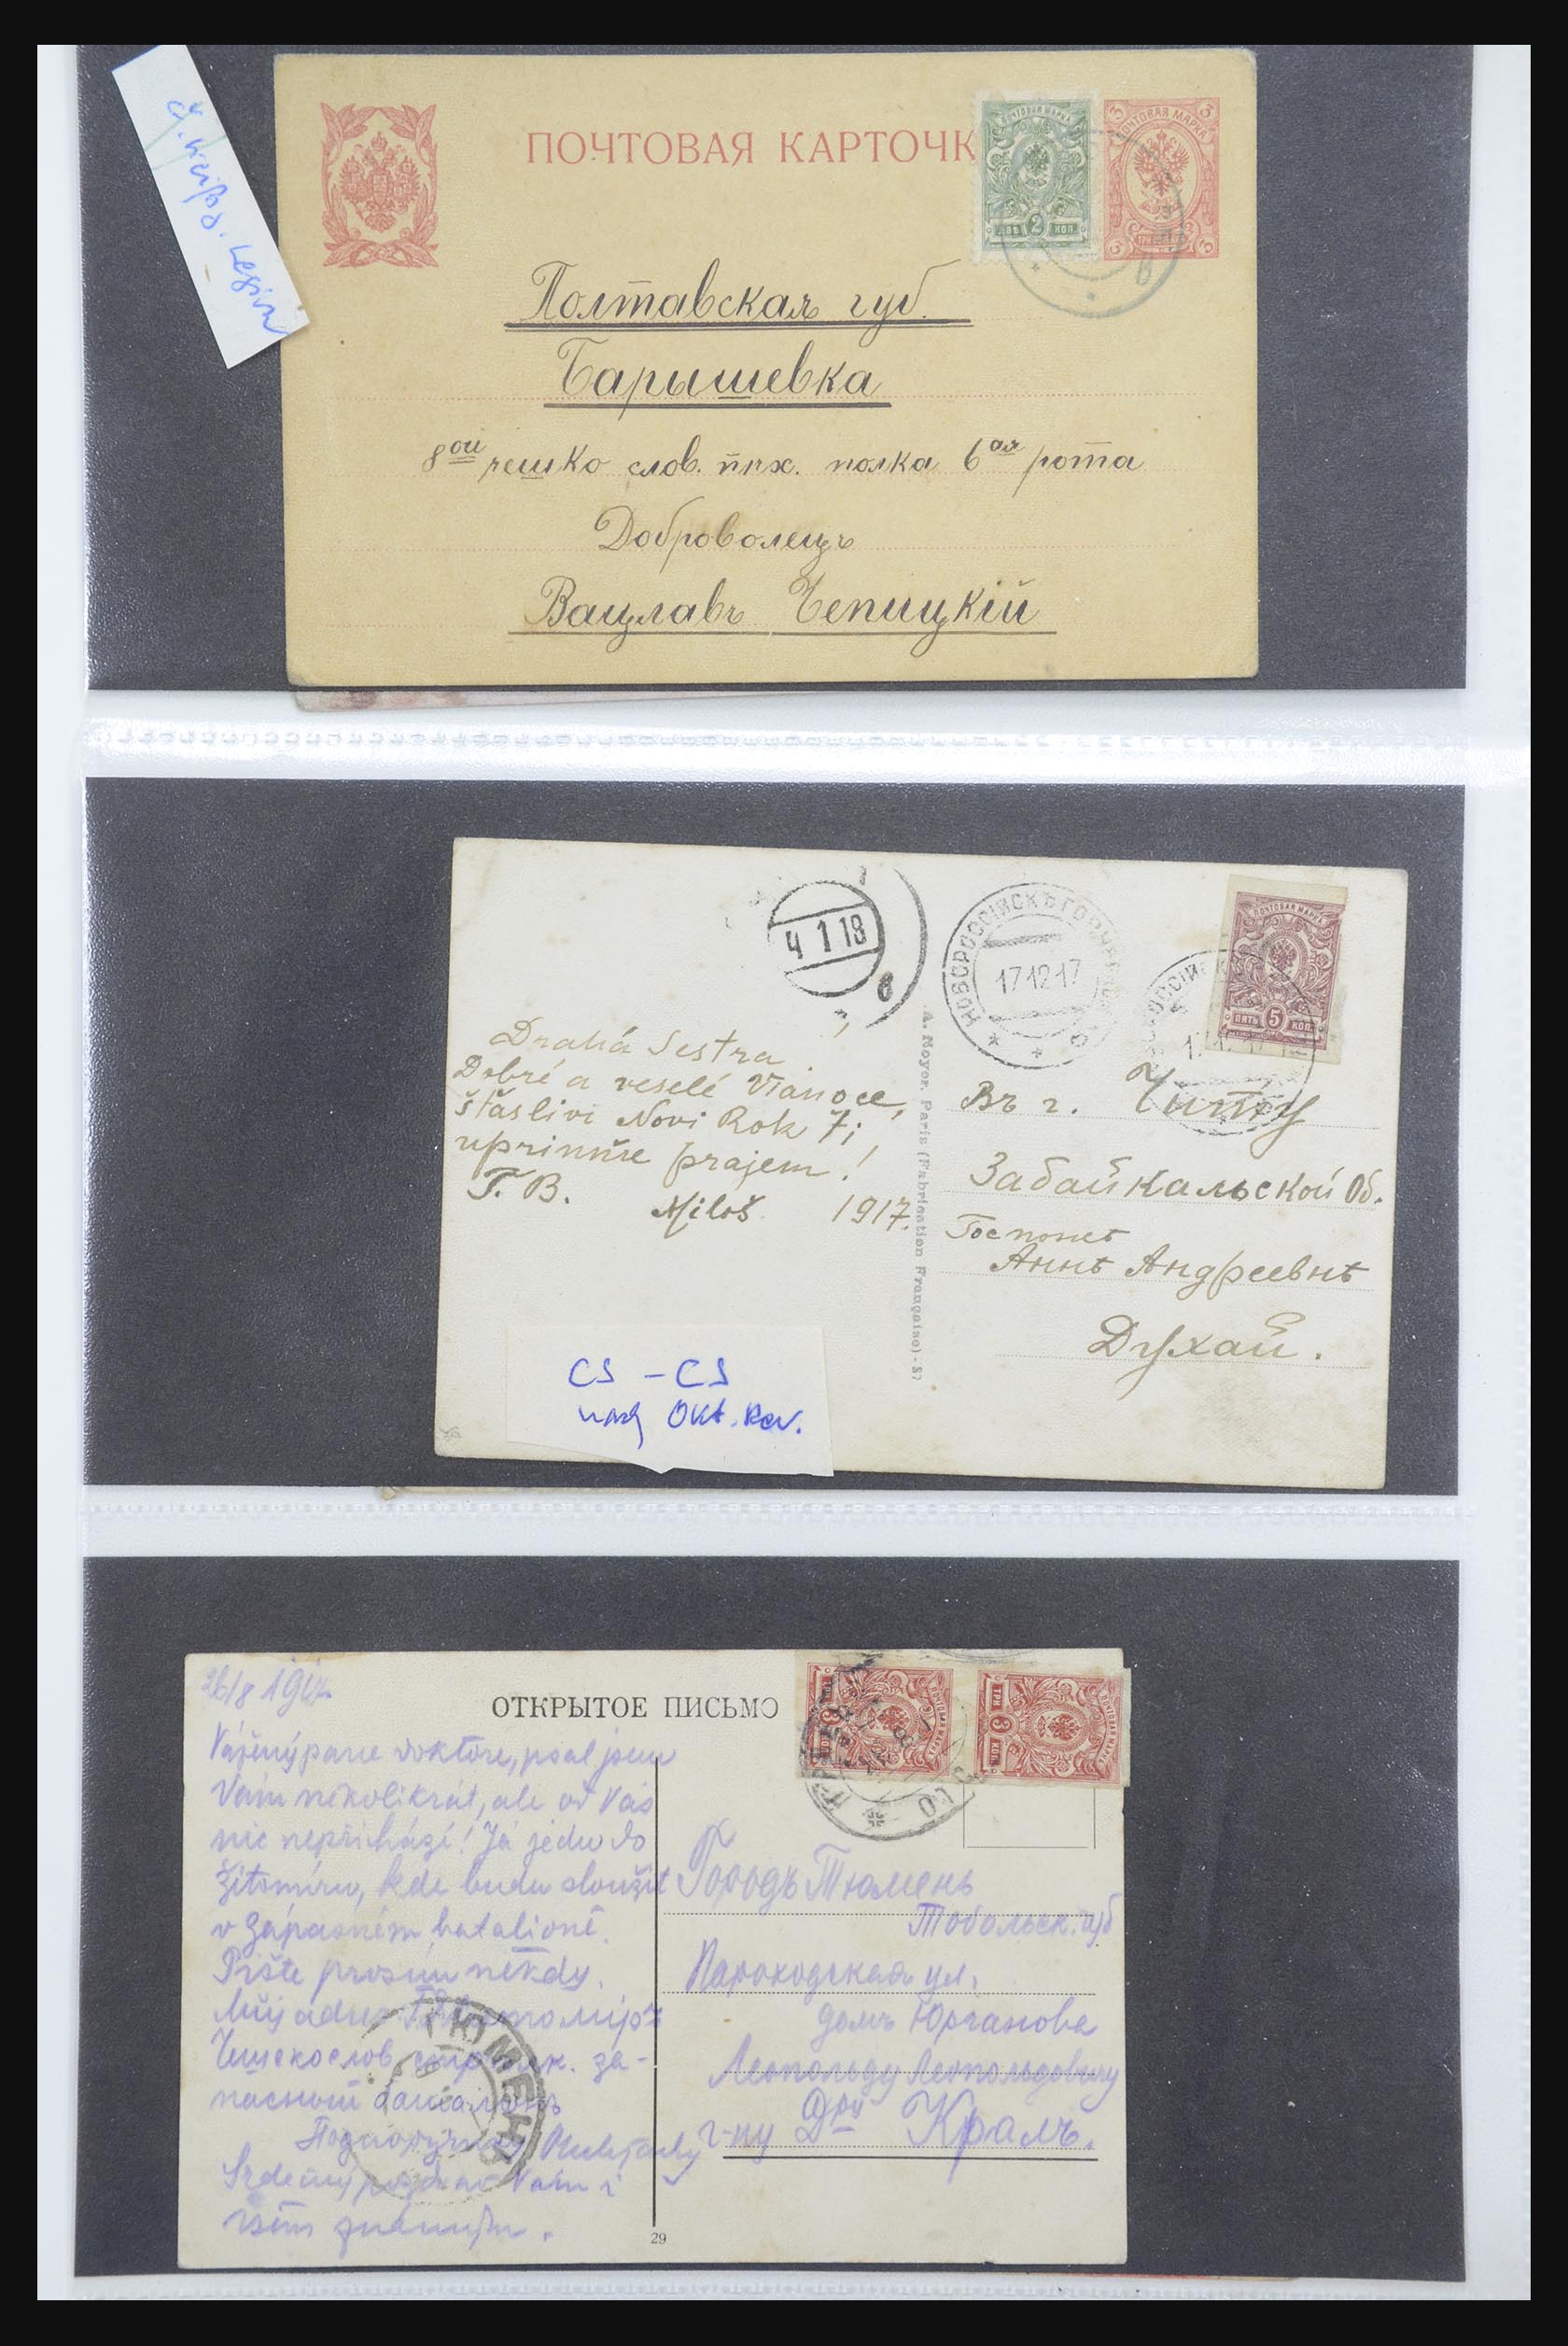 ПОЧТОВАЯ КАРТОЧК
ПОЧТОВАЯ МАРКА
2
КОП.
ПОЧТОВАЯ МАРКА
3 3
Полтавская губ.
Барышевка
8ой чешко слов. пѣх. полка 6ая рота
Доброволецъ
Вацлавъ Чепицкій
4 1 18
в
НОВОРОССІЙСКЪ ГОР
17 12 17
ПОЧТОВАЯ МАРКА
ПЯТЬ 5 КОП.
Drahá Sestra
Dobré a veselé Vianoce,
šťaslivi Novi Rok Ti
uprimňe prajem!
T. B.
Miloš 1917.
A. Noyer, Paris (Fabrication Française)
Въ г. Читу
Забайкальской Об.
Госпожѣ
Аннѣ Андреевнѣ
Духай.
CS – CS
nach Okt. Rev.
26/8 1917
ОТКРЫТОЕ ПИСЬМО
Vážený pane doktore, psal jsem
Vám několikrát, ale od Vás
nic nepřichází! Já jedu do
Žitomíru, kde budu sloužit
v zápasném batalioně.
Pište prosím někdy.
Můj adres Г. Житомиръ
Чешскослов. стрѣлк. за-
пасный баталіонъ
Подпоручику
Srdečný pozdrav Vám i
všem známým.
ТЮМЕНЬ
ПОЧТОВАЯ МАРКА
ТРИ 3 КОП.
ПОЧТОВАЯ МАРКА
ТРИ 3 КОП.
Городъ Тюмень
Тобольск. губ
Пароходская ул.
домъ Юрганова
Леопольду Леопольдовичу
г-ну Дру Кралъ.
29